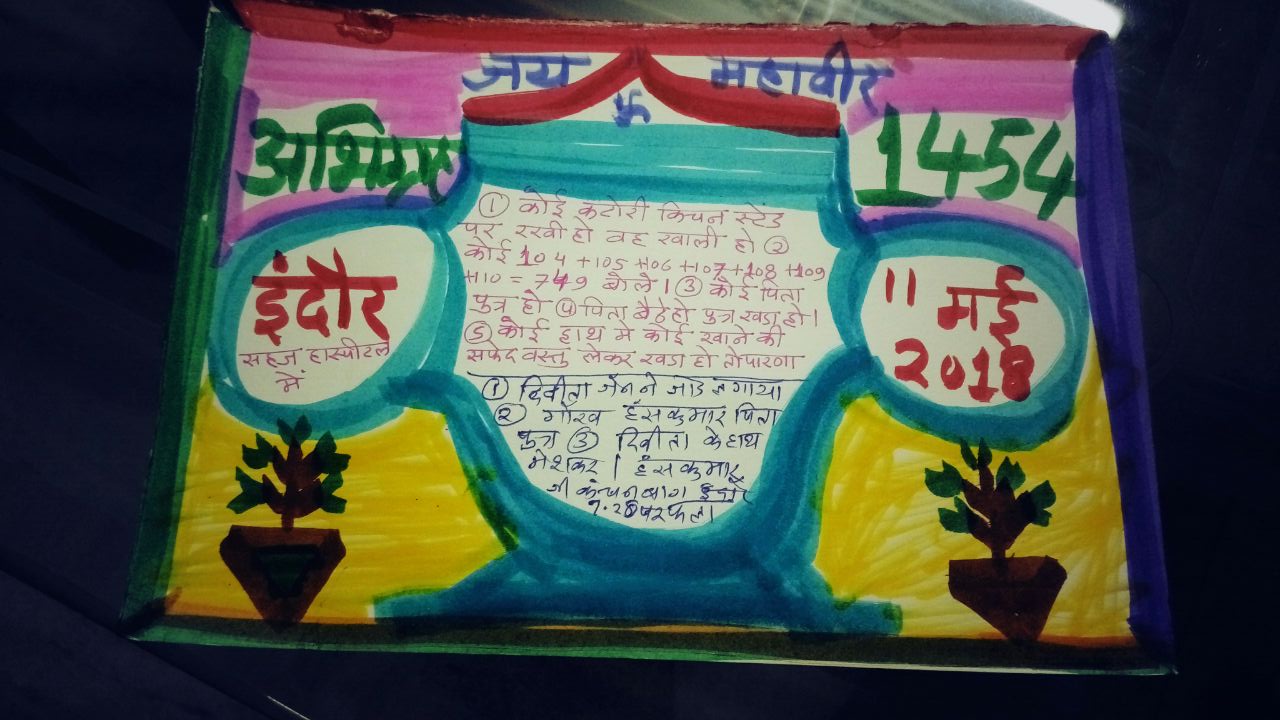 जय महावीर
卐
अभिग्रह 1454
① कोई कटोरी किचन स्टेंड
पर रखी हो वह खाली हो ②
कोई 104 +105 +106 +107+108 +109
+110 = 749 बोले। ③ कोई पिता
पुत्र हो ④ पिता बैठे हो पुत्र खडा हो।
⑤ कोई हाथ मे कोई खाने की
सफेद वस्तु लेकर खडा हो तो पारणा
इंदौर
सहज हास्पीटल
में
11 मई
2018
① जैन ने जोड लगाया
② गौरव हंस कुमार पिता
पुत्र ③ के हाथ
मे शकर। हंस कुमार
जी कंचनबाग इंदौर
पर फला।